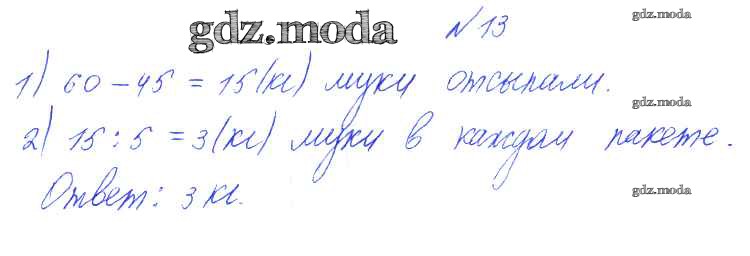 gdz.moda
№ 13
gdz.moda
1) 60 – 45 = 15 (кг) муки отсыпали.
gdz.moda
2) 15 : 5 = 3 (кг) муки в каждом пакете.
Ответ: 3 кг.
gdz.moda